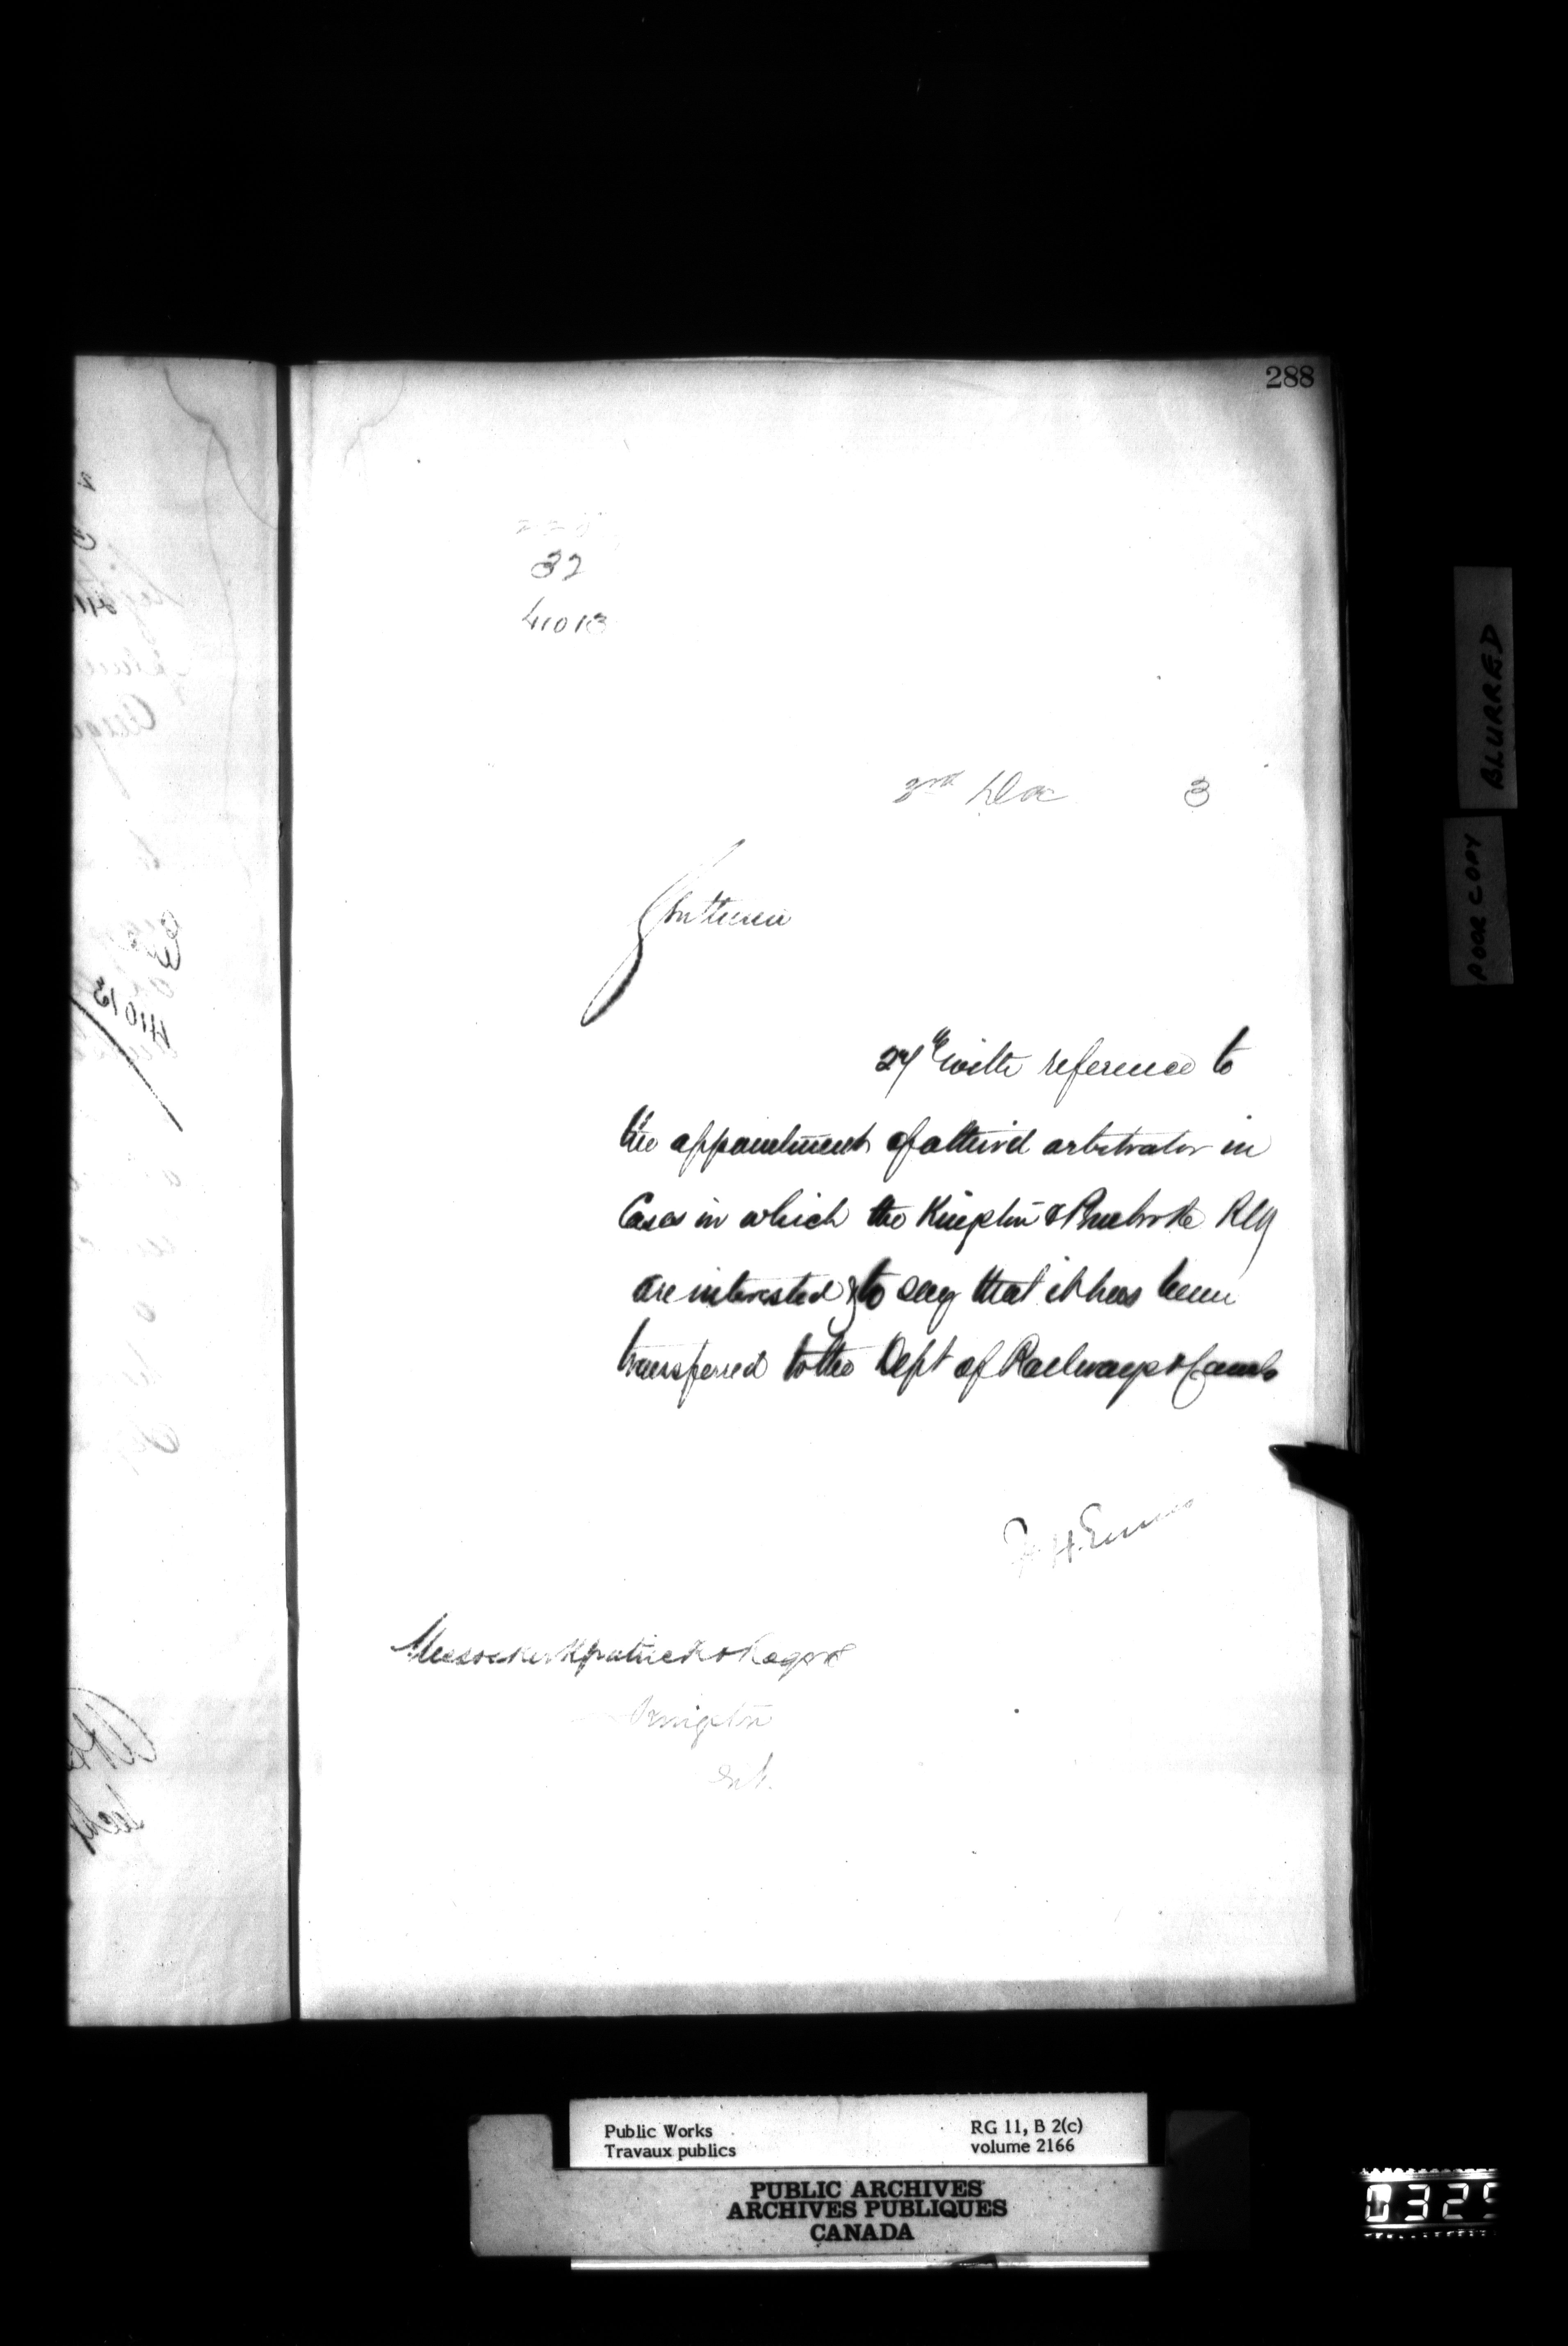 288
32
41013
3rd Dec 3
Gentlemen
27th with reference to
the appointment of a third arbitrator in
Cases in which the Kingston & Pembroke Rly
are interested & to say that it has been
transferred to the Dept of Railways & Canals
F. H. Ennis
Messrs Kirkpatrick & Rogers
Kingston
Ont.
BLURRED
POOR COPY
41013
Public Works
Travaux publics
RG 11, B 2(c)
volume 2166
PUBLIC ARCHIVES
ARCHIVES PUBLIQUES
CANADA